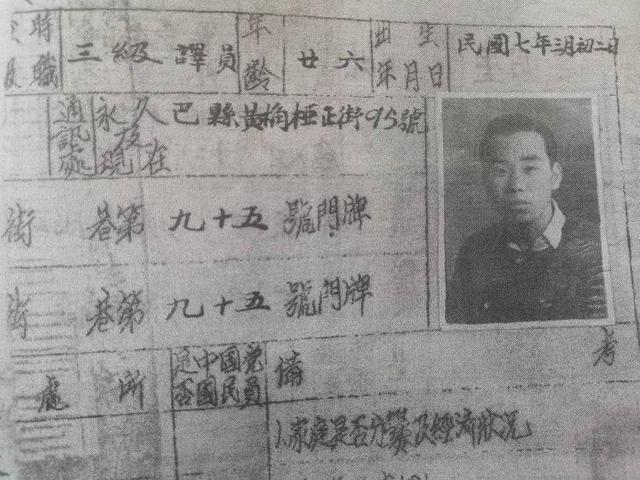 時職 三級譯員 年齡 廿六 出生年月日 民國七年三月初二日
通訊處 永久及現在 巴縣黃桷垭正街95號
街 巷第 九十五 號門牌
街 巷第 九十五 號門牌
處 所 是否中國國民党員 備 考
1.家庭是否分爨及經濟狀況